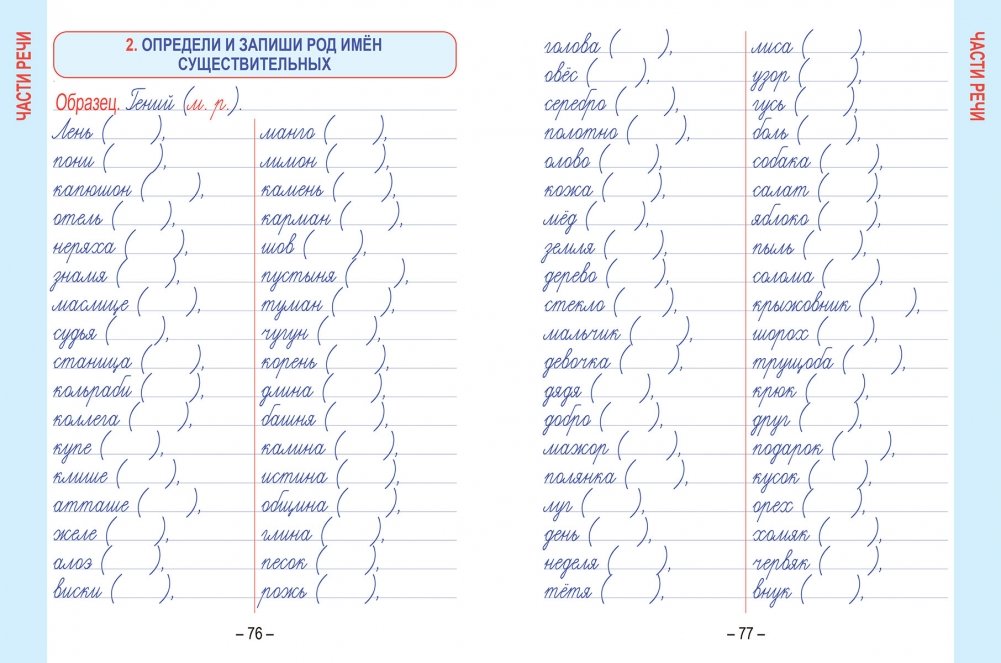 ЧАСТИ РЕЧИ
2. ОПРЕДЕЛИ И ЗАПИШИ РОД ИМЁН
СУЩЕСТВИТЕЛЬНЫХ
Образец. Гений (м. р.).
Лень ( ),
пони ( ),
капюшон ( ),
отель ( ),
неряха ( ),
знамя ( ),
маслице ( ),
судья ( ),
станица ( ),
кольраби ( ),
коллега ( ),
купе ( ),
клише ( ),
атташе ( ),
желе ( ),
алоэ ( ),
виски ( ),
манго ( ),
лимон ( ),
камень ( ),
карман ( ),
шов ( ),
пустыня ( ),
туман ( ),
чугун ( ),
корень ( ),
длина ( ),
башня ( ),
калина ( ),
истина ( ),
община ( ),
глина ( ),
песок ( ),
рожь ( ),
– 76 –
голова ( ),
овёс ( ),
серебро ( ),
полотно ( ),
олово ( ),
кожа ( ),
мёд ( ),
земля ( ),
дерево ( ),
стекло ( ),
мальчик ( ),
девочка ( ),
дядя ( ),
добро ( ),
мажор ( ),
полянка ( ),
луг ( ),
день ( ),
неделя ( ),
тётя ( ),
лиса ( ),
узор ( ),
гусь ( ),
боль ( ),
собака ( ),
салат ( ),
яблоко ( ),
пыль ( ),
солома ( ),
крыжовник ( ),
шорох ( ),
трущоба ( ),
крюк ( ),
друг ( ),
подарок ( ),
кусок ( ),
орех ( ),
хомяк ( ),
червяк ( ),
внук ( ),
– 77 –
ЧАСТИ РЕЧИ